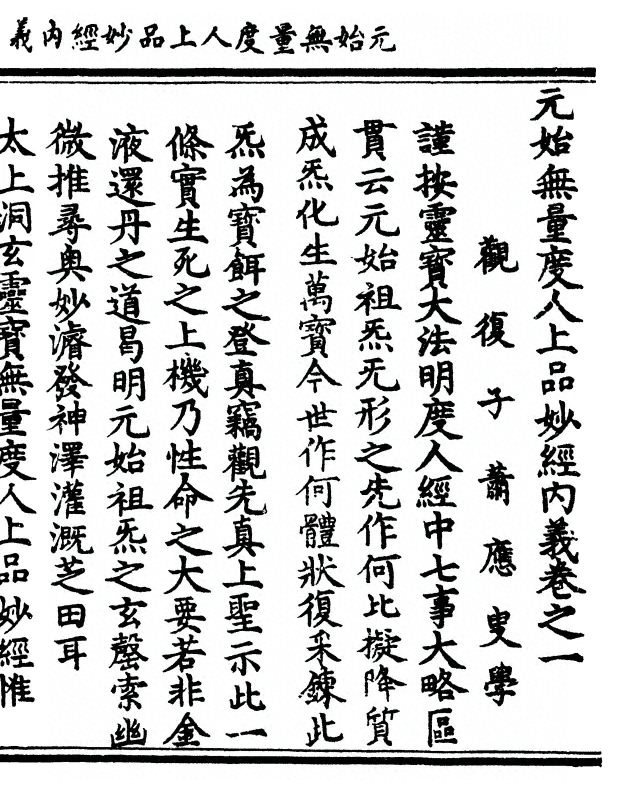 元始無量度人上品妙經內義
元始無量度人上品妙經內義卷之一
觀復子蕭應叟學
謹按靈寶大法明度人經中七事大略區
貫云元始祖炁旡形之先作何比擬降質
成炁化生萬寶今世作何體狀復采鍊此
炁為寶餌之登真竊觀先真上聖示此一
條實生死之上機乃性命之大要若非金
液還丹之道曷明元始祖炁之玄罄索幽
微推尋奧妙濬發神澤灌溉芝田耳
太上洞玄靈寶無量度人上品妙經惟